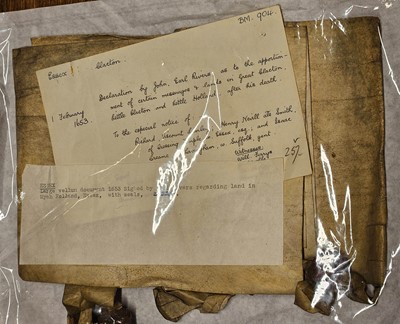 BM. 904.
Essex Clacton.
1 February 1653
Declaration by John, Earl Rivers, as to the apportion-
ment of certain messuages & lands in Great Clacton,
Little Clacton and Little Holland after his death.
To the especial notice of Henry Nevill als Smith
Richard Viscount
of Cressing Temple, Essex, esq., and
in Suffolk, gent.
Witnesses
Will.
25/-
ESSEX
Large vellum document 1653 signed by regarding land in
Essex, with seals.